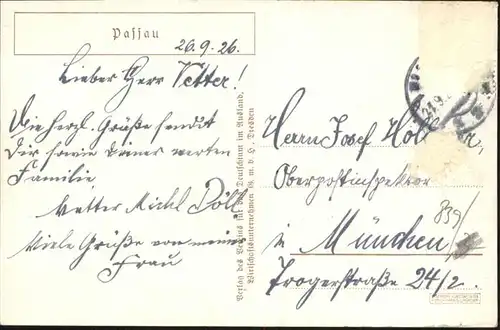 Passau
26.9.26.
Lieber Herr Vetter!
Die herzl. Grüße sendet
Dir sowie Deiner werten
Familie
Vetter Michl Döll
Viele Grüße von meiner
Frau
Verlag des Vereins für das Deutschtum im Ausland,
Wirtschaftsunternehmen G. m. b. H., Dresden
Herrn Josef
Oberpostinspektor
in München
Trogerstraße 24/2.